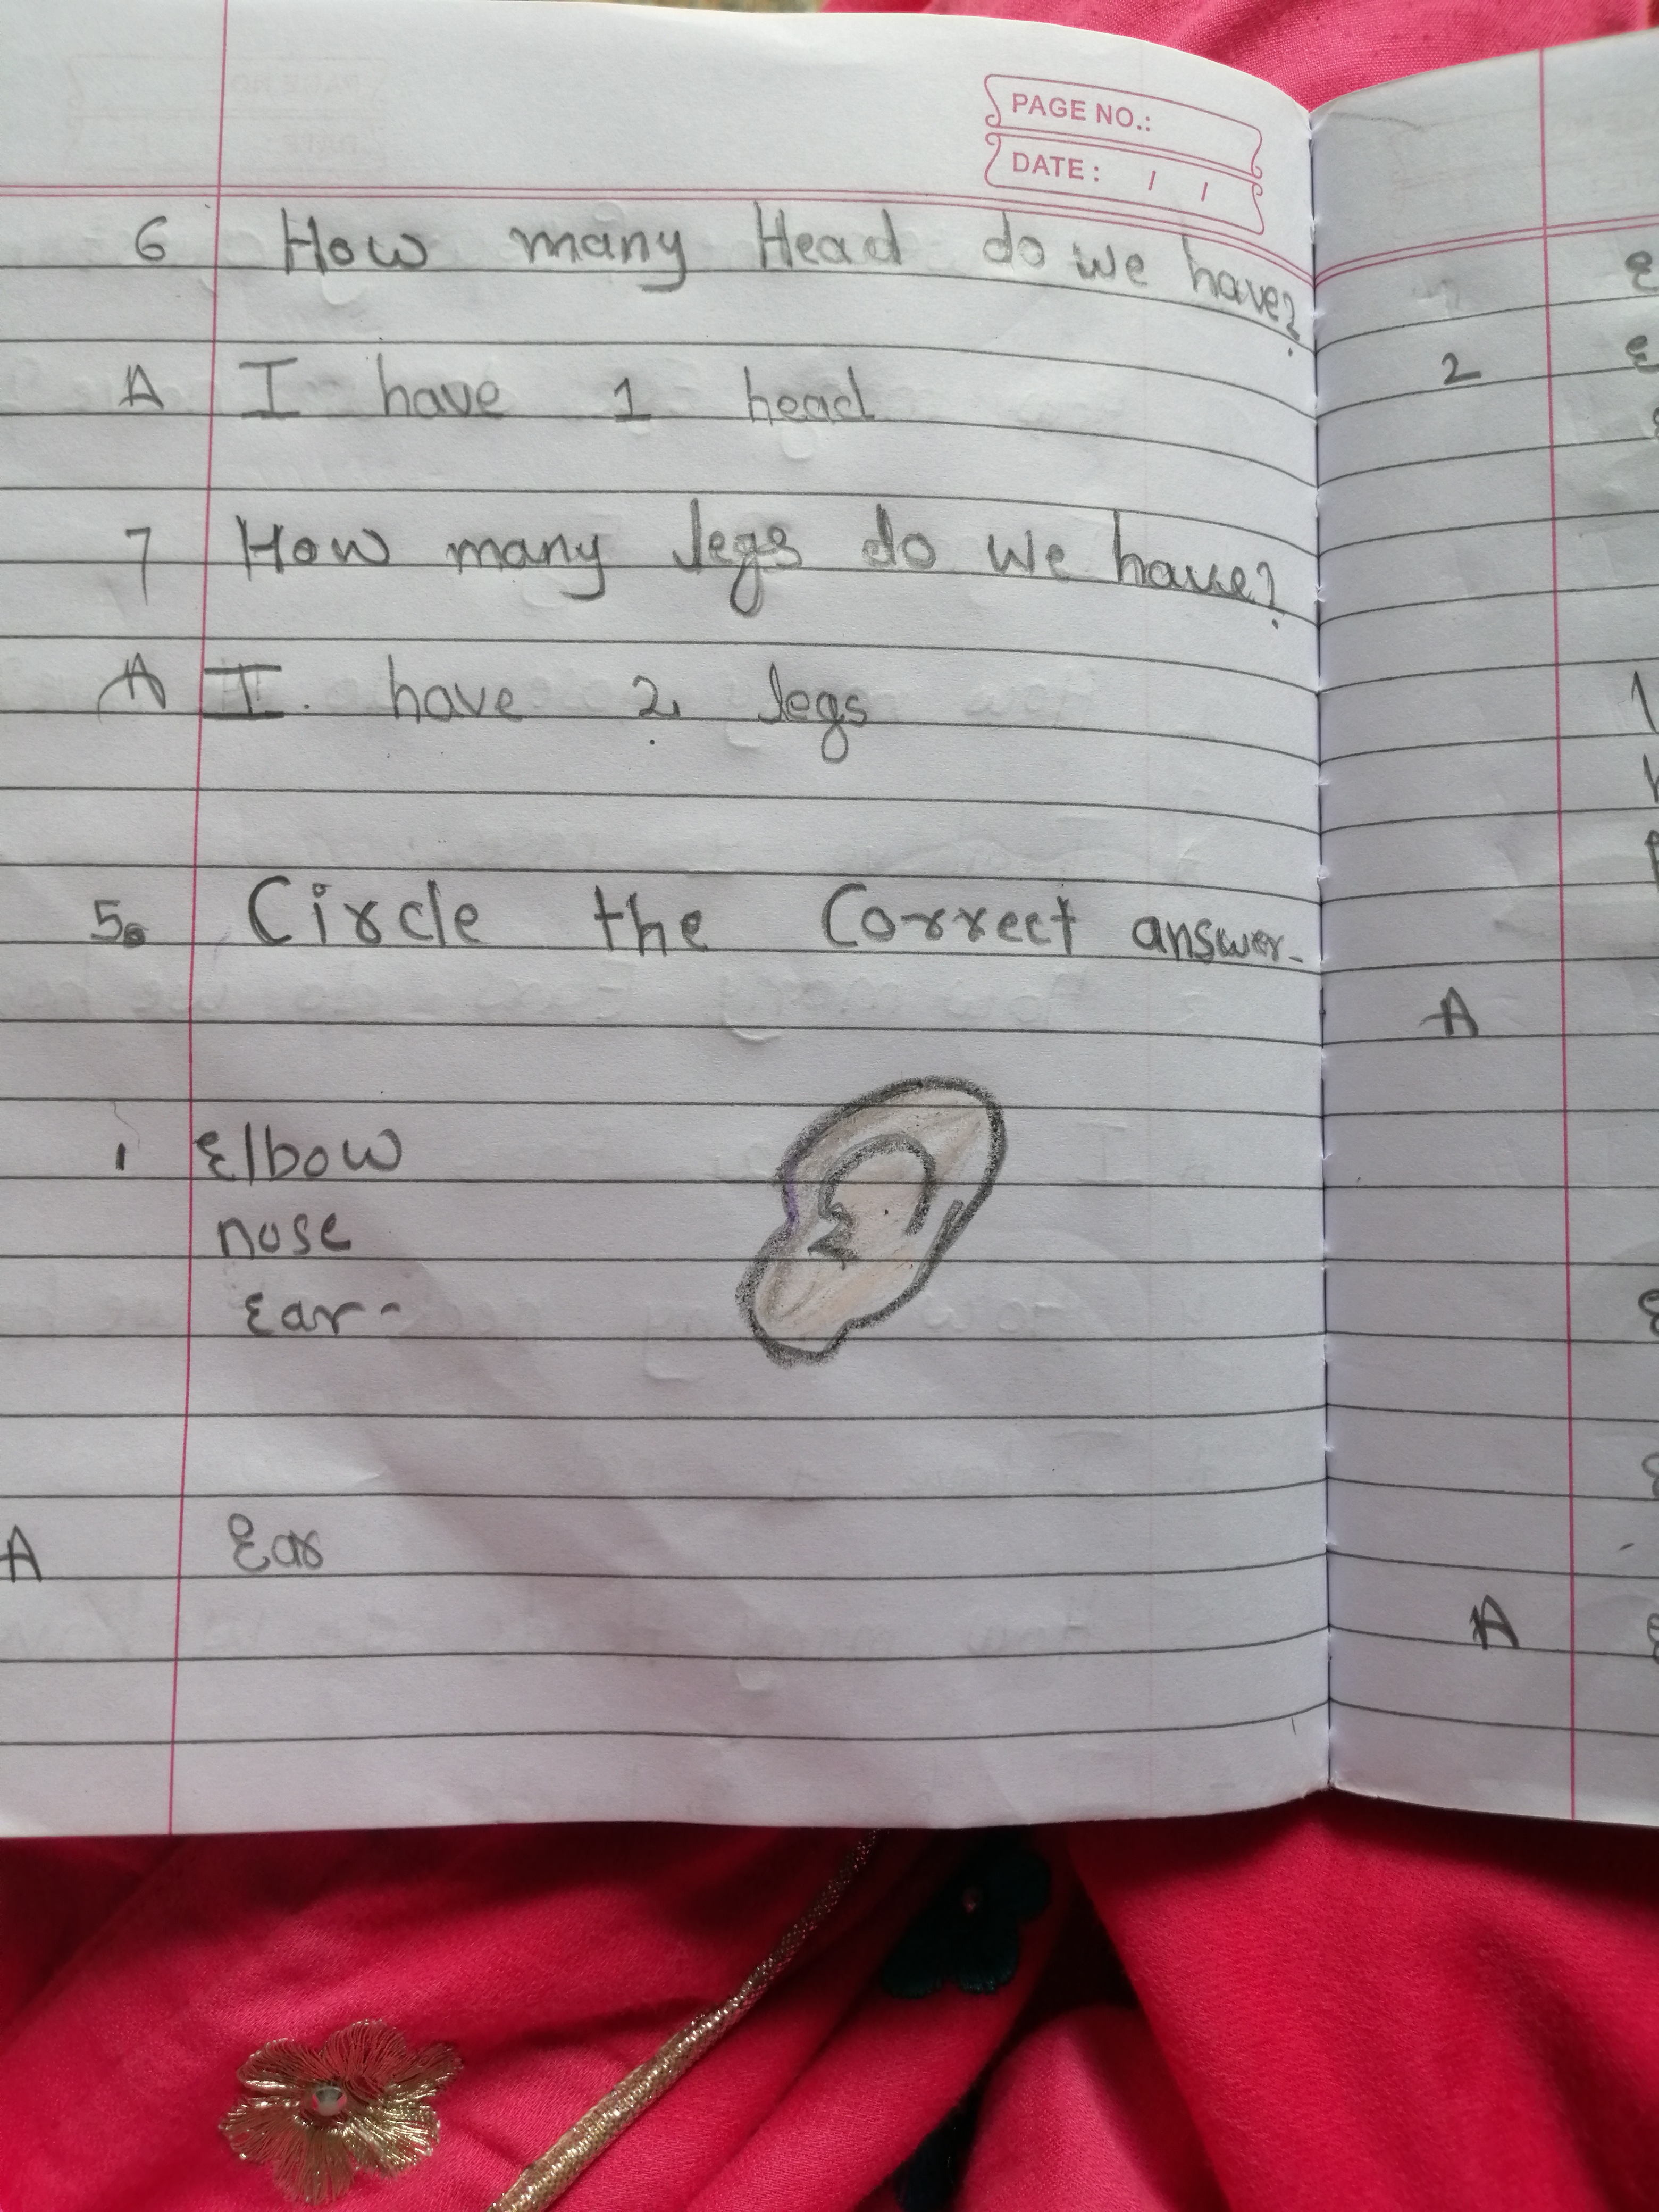 PAGE NO.:
DATE: / /
6 How many Head do we have?
A I have 1 head
7 How many legs do we have?
A I. have 2 legs
5. Circle the Correct answer.
1 Elbow
nose
Ear-
A Ear
2
A
A